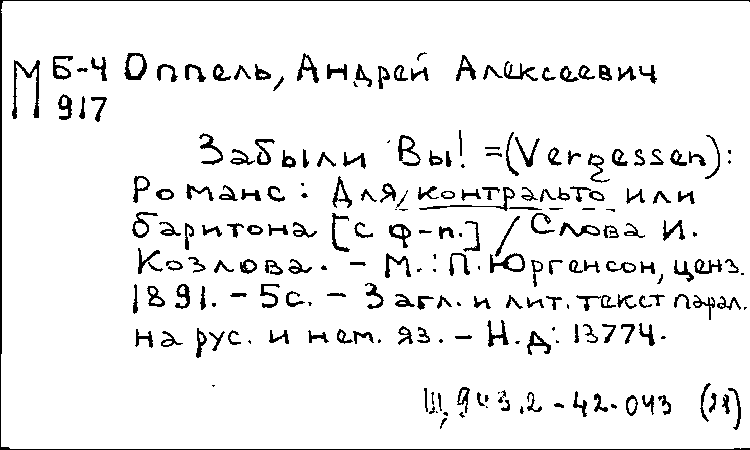 М Б-4 Оппель, Андрей Алексеевич
917
Забыли Вы! = (Vergessen):
Романс: Для контральто или
баритона [с ф-п.] / Слова И.
Козлова. - М.: П. Юргенсон, ценз.
1891. - 5с. - Загл. и лит. текст парал.
на рус. и нем. яз. - Н.д: 13774.
Щ,943.2-42-043 (21)